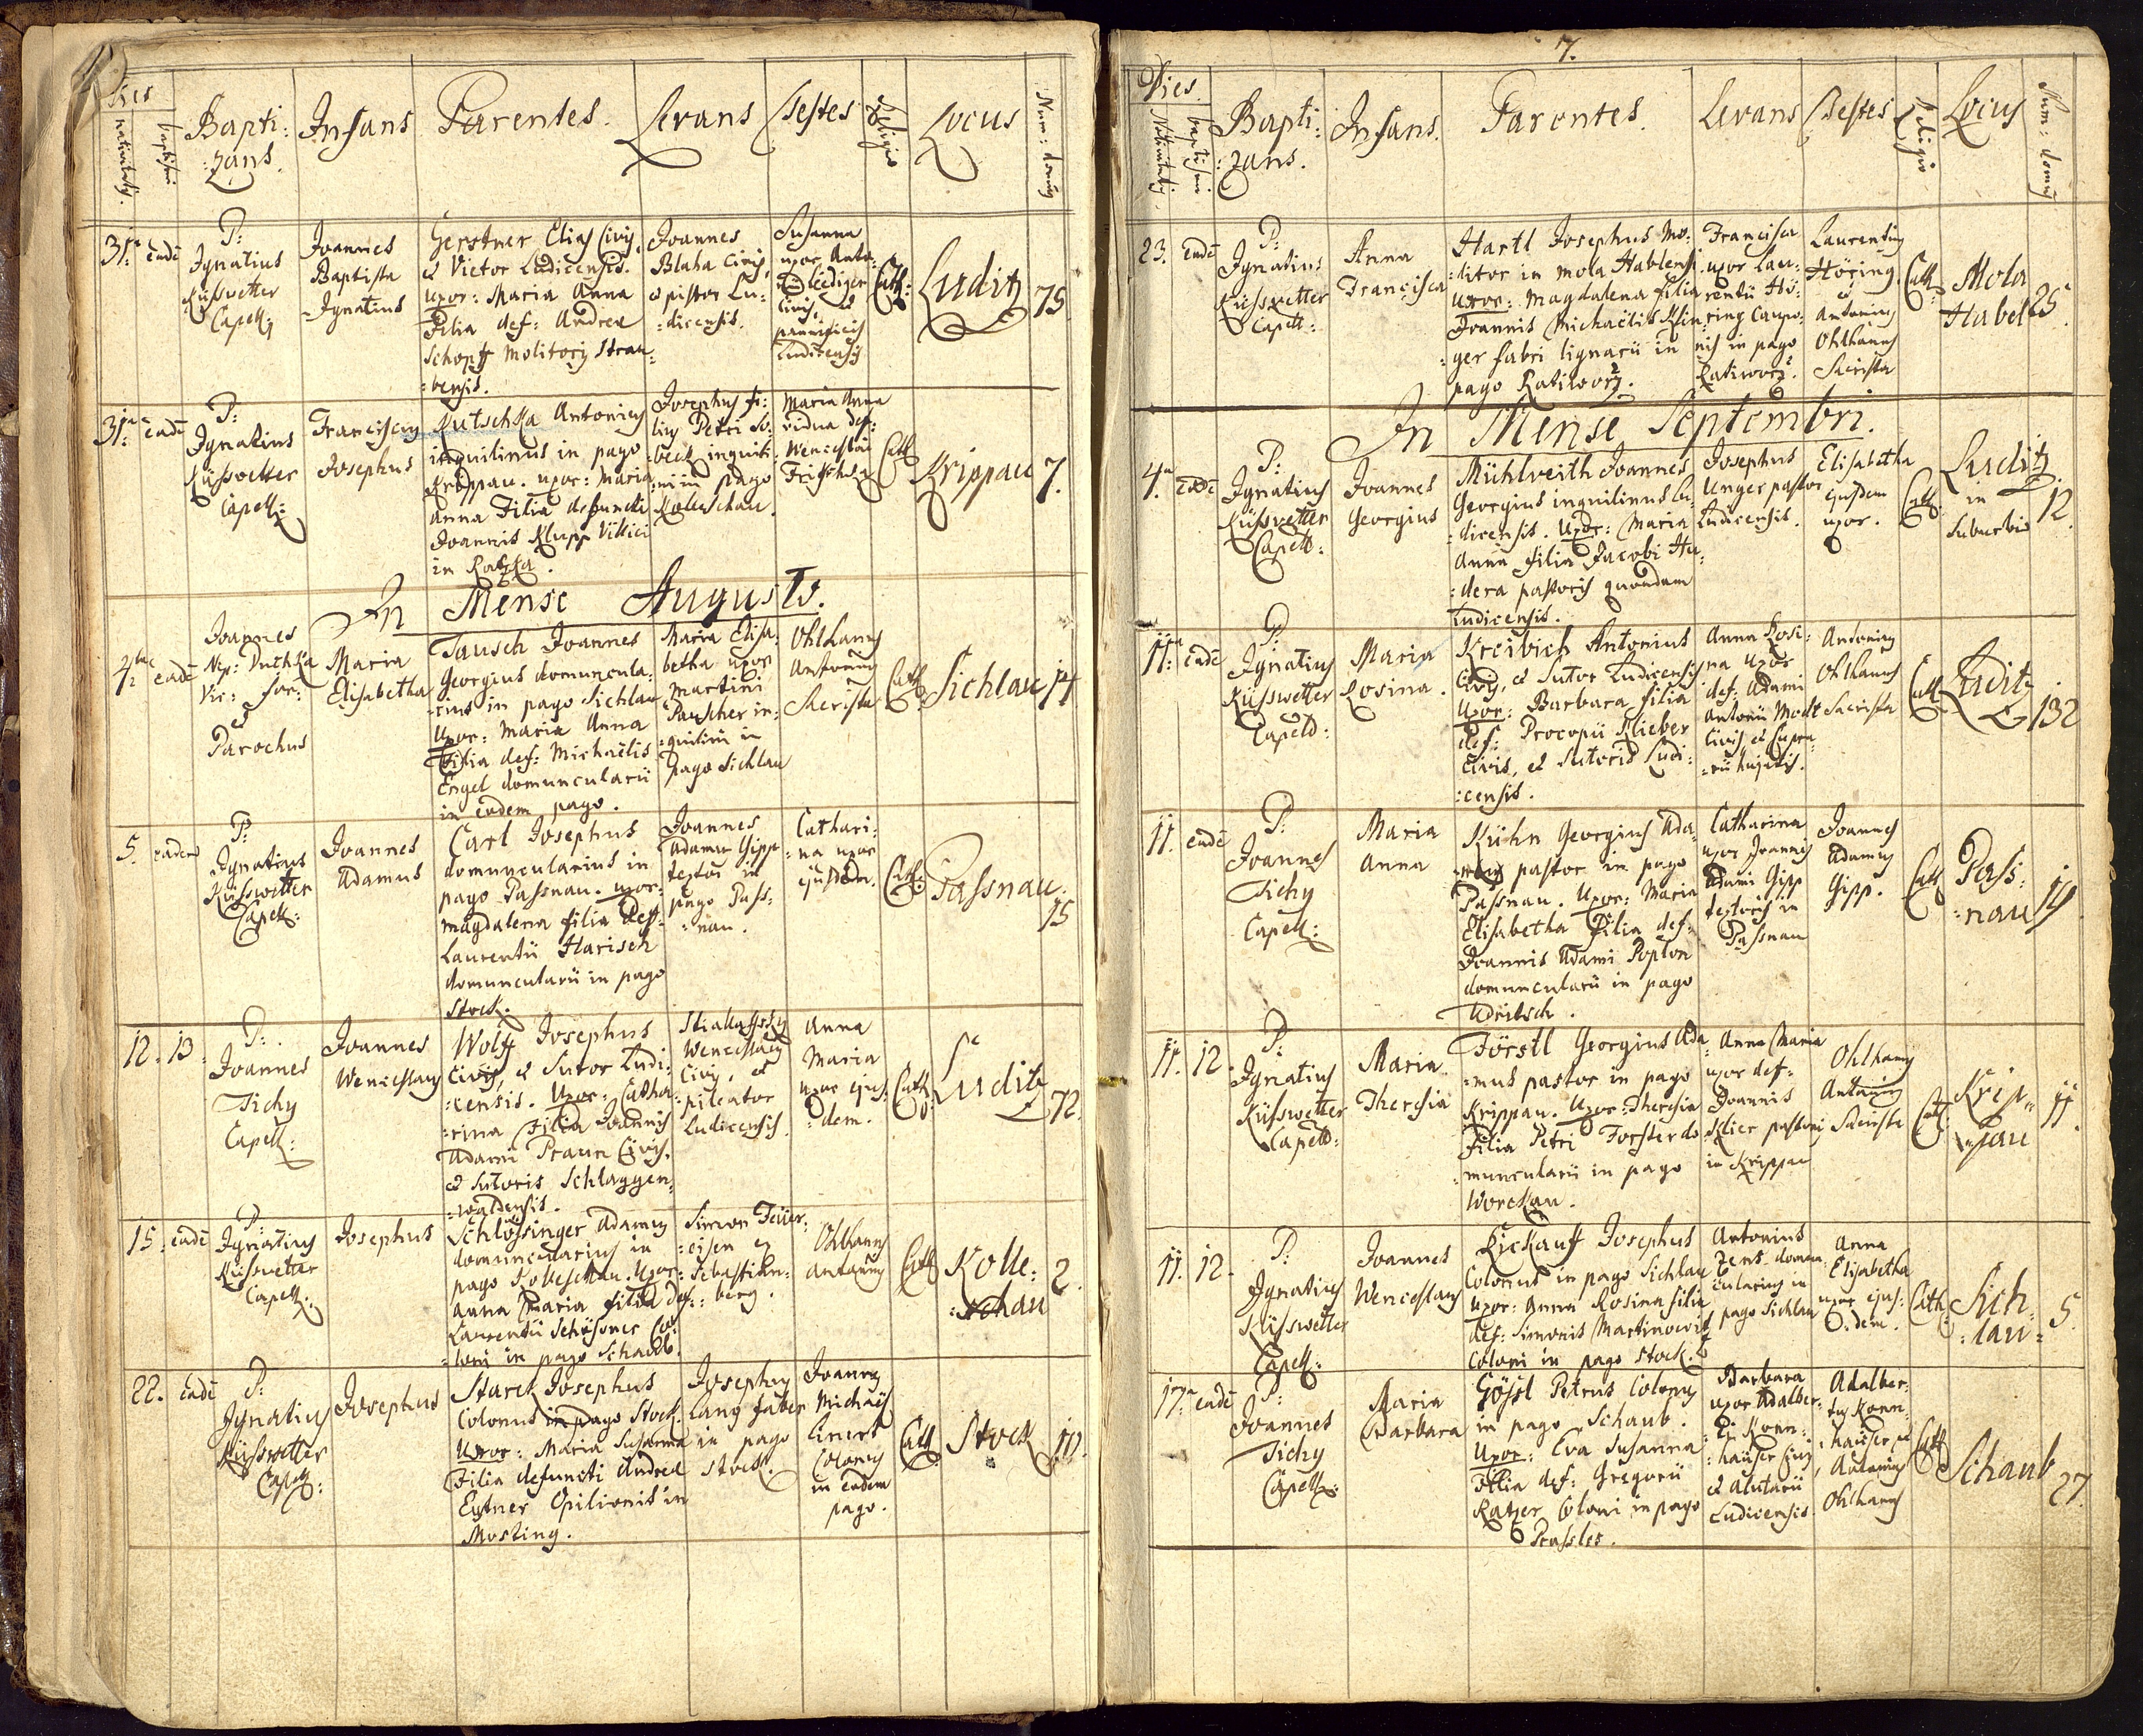 Dies
nativitatis.
baptismi
Bapti:
:zans.
Infans
Parentes.
Levans
Testes
Religio
Locus
Num: domus
31a eadē
P:
Ignatius
Küsswetter
Capell:
Joannes
Baptista
Ignatius
Gerstner Elias Civis,
et Victor Ludicensis.
uxor: Maria Anna
Filia def: Andreæ
Schopff Molitoris Strau
:bensis.
Joannes
Blaha Civis,
et pistor Lu:
:dicensis.
Susanna
uxor Anto:
Lediger
Civis, et
pannificis
Ludicensis
Cath:
Luditz
75.
31a eadē
P:
Ignatius
Küsswetter
Capell:
Franciscus
Josephus
Kutschka Antonius
inquilinus in pago
Krippau. uxor: Maria
Anna Filia defuncti
Joannis Klupp Villici
in Ratzka.
Josephus fi:
lius Petri So:
:beck inquili:
:ni in pago
Kolleschau.
Maria Anna
vidua def:
Wenceslai
Cath
Krippau
7.
In Mense Augusto.
4ta eadē
Joannes
Nep: Duchka
Vic: for:
et
Parochus
Maria
Elisabetha
Tausch Joannes
Georgius domuncula:
:rius in pago Sichlau
Uxor: Maria Anna
Filia def: Michaëlis
Engel domuncularii
in eodem pago.
Maria Elisa:
betha uxor
Martini
Pauscher in:
:quilini in
pago Sichlau
Ohlhanns
Antonius
Sacrista
Cath
Sichlau
14
5. eadem
P:
Ignatius
Küsswetter
Capell:
Joannes
Adamus
Carl Josephus
domuncularius in
pago Passnau. uxor:
Magdalena filia def:
Laurentii Harisch
domuncularii in pago
Stock.
Joannes
Adamus Gipp
textor in
pago Pass:
:nau.
Cathari:
:na uxor
ejusdem.
Cath:
Passnau.
15
12. 13.
P:
Joannes
Tichy
Capell:
Joannes
Wenceslaus
Wolff Josephus
Civis, et Sutor Ludi:
:censis. Uxor: Catha:
:rina Filia Joannis
Adami Praun Civis,
et Sutoris Schlaggen,
:waldensis.
Wenceslaus
Civis, et
pileator
Ludicensis.
Anna
Maria
uxor ejus:
:dem.
Cath:
Luditz
72.
15. eadē
P:
Ignatius
Küsswetter
Capell:
Josephus
Schlössinger Adamus
domuncularius in
pago Kolleschau. Uxor:
Anna Maria filia def:
Laurentii Schössner Co:
:loni in pago Schaub.
Simon Feüer:
:eisen ex
Sebastian:
:berg.
Ohlhanns
Antonius
Cath
Kolle:
:schau
2.
22. eadē
P:
Ignatius
Küsswetter
Capell:
Josephus
Starck Josephus
Colonus in pago Stock.
Uxor: Maria Susanna
Filia defuncti Andreæ
Eytner Opilionis in
Mosting.
Josephus
Lang faber
in pago
Stock.
Joannes
Michaël
Linert
Colonus
in eodem
pago.
Cath
Stock
10.
7.
Dies
Nativitatis.
baptismi
Bapti:
:zans.
Infans.
Parentes.
Levans
Testes
Religio
Locus
Num: domus
23. eadē
P:
Ignatius
Küsswetter
Capell:
Anna
Francisca
Hartl Josephus Mo:
:litor in mola Hablensi.
uxor: Magdalena filia
Joannis Michaëlis Klin
:ger fabri lignarii in
pago Ratiworz.
Francisca
uxor Lau:
rentii Hö:
:ring Caupo:
nis in pago
Ratiworz.
Laurentius
Höring.
et
Antonius
Ohlhanns
Sacrista
Cath
Mola
Habel
25.
In Mense Septembri.
4a eadē
P:
Ignatius
Küsswetter
Capell:
Joannes
Georgius
Mühlveith Joannes
Georgius inquilinus Lu:
:dicensis. Uxor: Maria
Anna filia Jacobi Hu:
:dera pastoris quondam
Ludicensis.
Josephus
Unger pastor
Ludicensis.
Elisabetha
ejusdem
uxor.
Cath
Luditz
in
Suburbio
12.
11a eadē
P:
Ignatius
Küsswetter
Capell:
Maria
Rosina.
Kreibich Antonius
Civis, et Sutor Ludicensis
Uxor: Barbara filia
def: Procopii Klieber
Civis, et Sutoris Ludi:
:censis.
Anna Rosi:
na Uxor
def: Adami
Antonii Modl
Civis et Cupra:
:rii hujatis.
Antonius
Ohlhanns
Sacrista
Cath
Luditz
132
11. eadē
P:
Joannes
Tichy
Capell:
Maria
Anna
Kühn Georgius Ada:
:mus pastor in pago
Passnau. Uxor: Maria
Elisabetha Filia def:
Joannis Adami Poplon
domuncularii in pago
Udritsch.
Catharina
uxor Joannis
Adami Gipp
textoris in
Passnau
Joannes
Adamus
Gipp.
Cath
Pass:
:nau
19
11. 12.
P:
Ignatius
Küsswetter
Capell:
Maria
Theresia
Förstl Georgius Ada
:mus pastor in pago
Krippau. Uxor: Theresia
Filia Petri Forster do
:muncularii in pago
Worckau.
Anna Maria
uxor def:
Joannis
Klier pastoris
in Krippau
Ohlhanns
Antonius
Sacrista
Cath:
Krip„
„pau
11.
11. 12.
P:
Ignatius
Küsswetter
Capell:
Joannes
Wenceslaus
Rickauff Josephus
Colonus in pago Sichlau
uxor: Anna Rosina filia
def: Simonis Martinowitz
Coloni in pago Stock.
Antonius
Zent domun
cularius in
pago Sichlau
Anna
Elisabetha
uxor ejus:
:dem.
Cath:
Sich:
:lau:
5.
17a eadē
P:
Joannes
Tichy
Capell:
Maria
Barbara
Gössl Petrus Colonus
in pago Schaub.
Uxor: Eva Susanna
Filia def: Gregorii
Ratzer Coloni in pago
Prassles.
Barbara
uxor Adalber:
:ti Konn:
:haüser Civis
et Alutarii
Ludicensis.
Adalber:
tus Konn:
:haüser et
Antonius
Ohlhanns
Cath
Schaub
27.